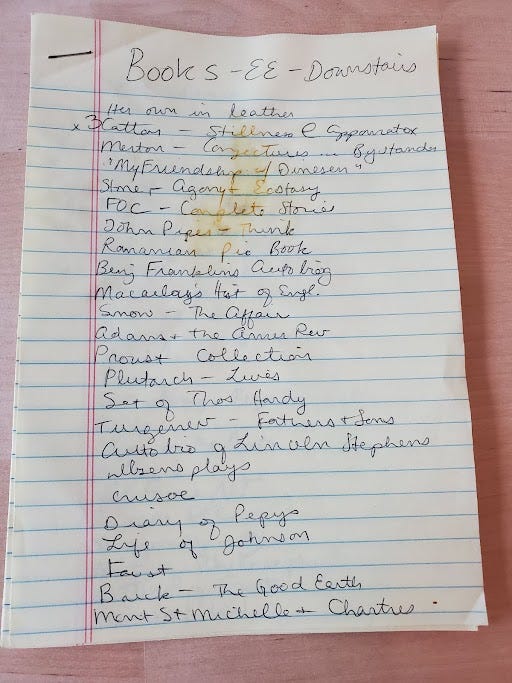 Books - EE - Downstairs
Her own in leather
x 3 Catton - Stillness @ Appomatox
Merton - Conjectures ... Bystander
"My Friendship w/ Dinesen"
Stone - Agony + Ecstasy
FOC - Complete Stories
John Piper - Think
Romanian Pic Book
Benj Franklin's Autobiog
Macaulay's Hist of Engl.
Snow - The Affair
Adams + the Amer Rev
Proust Collection
Plutarch - Lives
Set of Thos Hardy
Turgenev - Fathers + Sons
Autobio of Lincoln Stephens
Ibsens plays
Crusoe
Diary of Pepys
Life of Johnson
Faust
Buck - The Good Earth
Mont St Michelle + Chartres